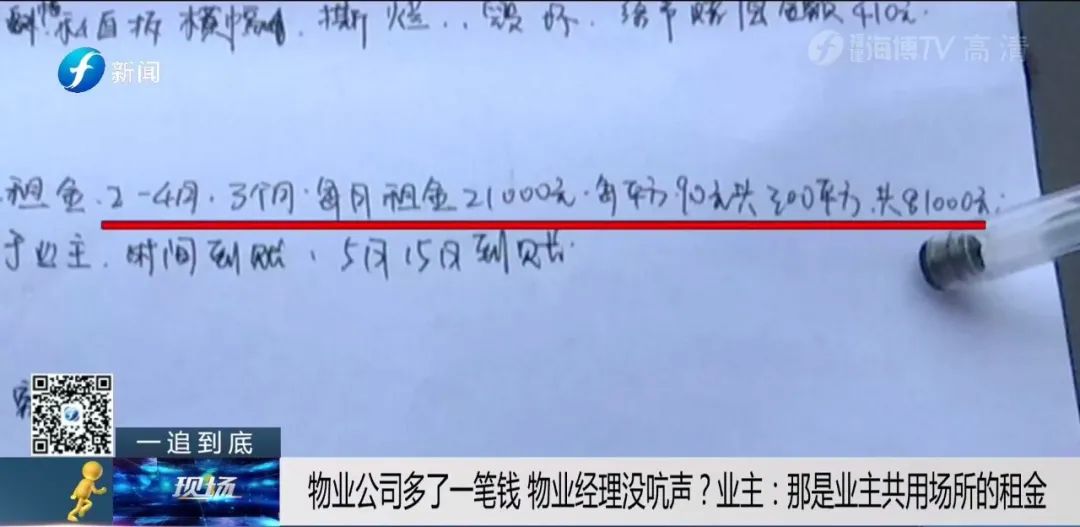 白板横幅 撕烂 毁坏 给予赔偿金额410元.
新闻
福建 海博TV 高清
租金.2-4月.3个月.每月租金21000元.每平方90元共300平方.共81000元;
于业主.时间到账、5月15日到账.
一追到底
现场
物业公司多了一笔钱 物业经理没吭声？业主：那是业主共用场所的租金